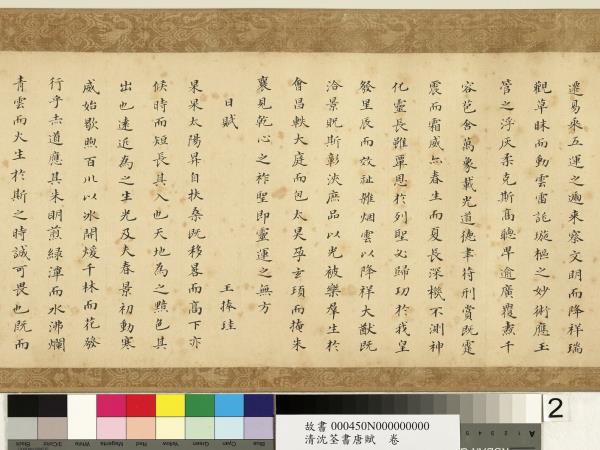 遷易乘五運之遞來察文明而降祥瑞
觀草昧而動雲雷詭璇樞之妙術應玉
管之浮灰柔克斯高聰卑逾廣覆燾千
容苞含萬象載光道德聿符刑賞既霆
震而霜威亦春生而夏長深機不測神
化靈長雖覃恩於列聖必歸功於我皇
發里辰而效祉雜烟雲以降祥大猷既
洽景貺斯彰浹庶品以光被樂羣生於
會昌軼大庭而包太昊孕玄頊而掩朱
襄見乾心之祚聖即靈運之無方
日賦 王捧珪
杲杲太陽昇自扶桑既移晷而高下亦
候時而短長其入也天地為之黯色其
出也遠近為之生光及夫春景初動寒
威始歇煦百川以冰開煖千林而花發
行乎赤道應其朱明煎綠潭而水沸爛
青雲而火生於斯之時誠可畏也既而
2
故書 000450N000000000
清沈荃書唐賦 卷
Black
3/Color
White
Magenta
Red
Yellow
Green
Cyan
Blue
A